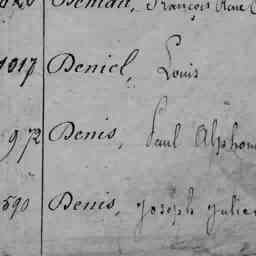 François
1017 Deniel, Louis
972 Denis, Paul Alphon
590 Denis, Joseph Julien